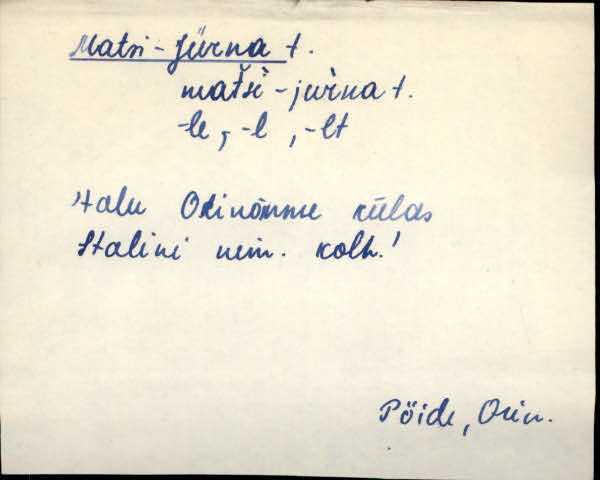 Matsi-Jürna t.
mat̆si-jürna t.
-le, -l, -lt
'talu Orinõmme külas
Stalini nim. kolh.'
Pöide, Orin.